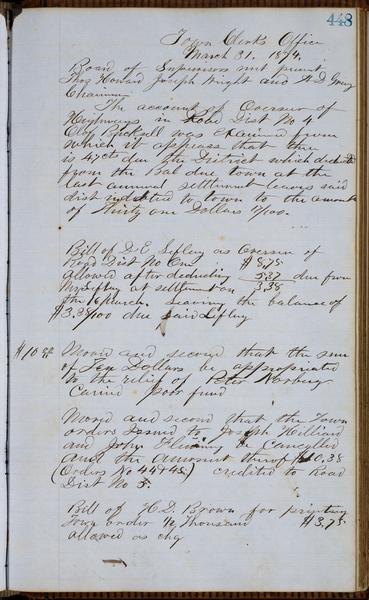 448
Town Clerk's Office
March 31. 1874.
Board of Supervisors met present
Thos Howard Joseph Wright and A D Gray
Chairman
The account of Overseer of
Highways in Road Dist No 4
was Examined from
which it appears that there
is 47cts due the District which deducted
from the Bal due town at the
last annual settlement leaves said
dist indebted to town to the amount
of Thirty one Dollars /100.
Bill of D. E. Lefley as Overseer of
Road Dist No One $8,75
allowed after deducting 5,37 due from
Mr Lefley at settlement on 3,38
the 16 March. Leaving the balance of
$3.38/100 due said Lefley
$10.00 Moved and second that the sum
of Ten Dollars be appropriated
to the relief of Peter
Carried Poor fund
Moved and second that the Town
orders Issued to Joseph Hilliard
and John Fleming be Cancelled
and the amount thereof $10,38
(Orders No 44 & 45) credited to Road
Dist No 5.
Bill of H. D. Brown for printing
Town order ½ Thousand $3,75
allowed as chg